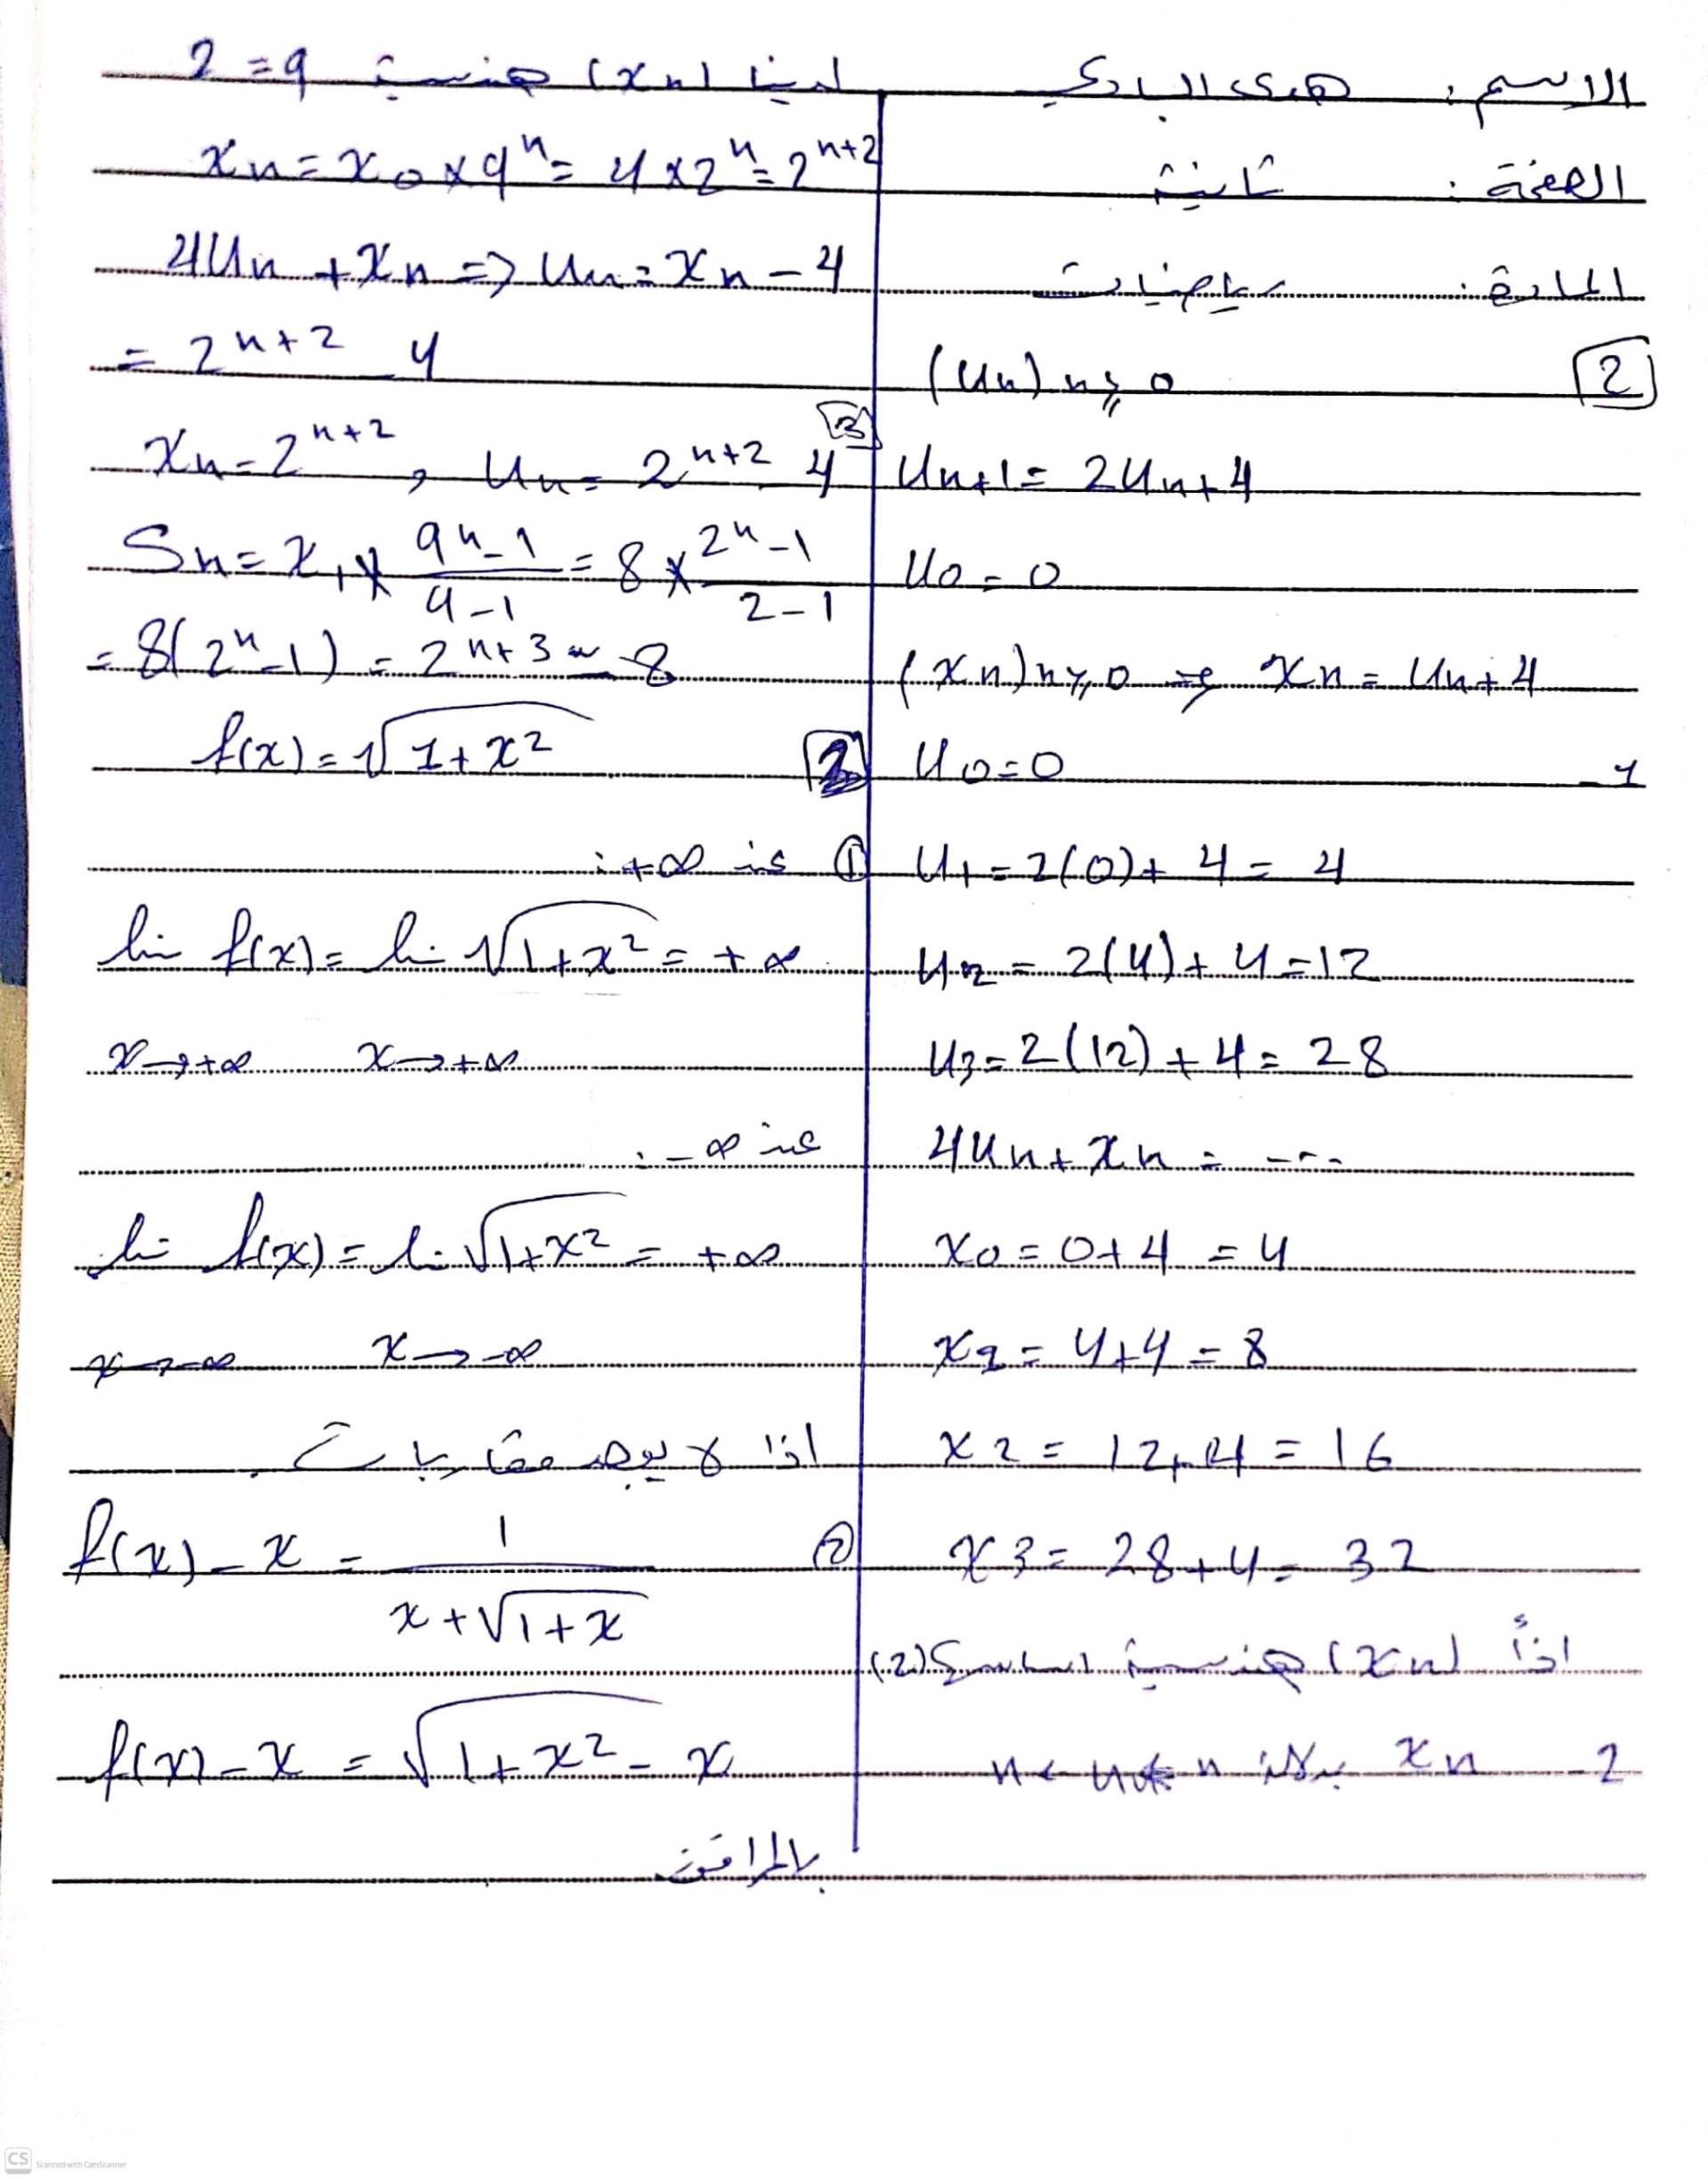 الاسم : هدى البادي
الصفحة : ثانية
المادة : رياضيات
2 (Un) n≥0
Un+1 = 2Un + 4
U0 = 0
(xn) n≥0 => xn = Un + 4
1- U0 = 0
U1 = 2(0) + 4 = 4
U2 = 2(4) + 4 = 12
U3 = 2(12) + 4 = 28
4Un + xn = ---
x0 = 0 + 4 = 4
x1 = 4 + 4 = 8
x2 = 12 + 4 = 16
x3 = 28 + 4 = 32
اذاً (xn) هندسية اساسها (2)
2- xn بدلالة n
لدينا (xn) هندسية q = 2
xn = x0 × q^n = 4 × 2^n = 2^n+2
4Un + xn => Un = xn - 4
= 2^n+2 - 4
xn = 2^n+2 , Un = 2^n+2 - 4
3
Sn = x1 × (q^n - 1)/(q - 1) = 8 × (2^n - 1)/(2 - 1)
= 8(2^n - 1) = 2^n+3 - 8
f(x) = √1 + x² 2
① عند +∞ :
lim f(x) = lim √1 + x² = +∞
x→+∞ x→+∞
عند -∞ :
lim f(x) = lim √1 + x² = +∞
x→-∞ x→-∞
اذا لا يوجد مقاربات .
② f(x) - x = 1/(x + √1 + x)
f(x) - x = √1 + x² - x
بالمرافق
CS Scanned with CamScanner